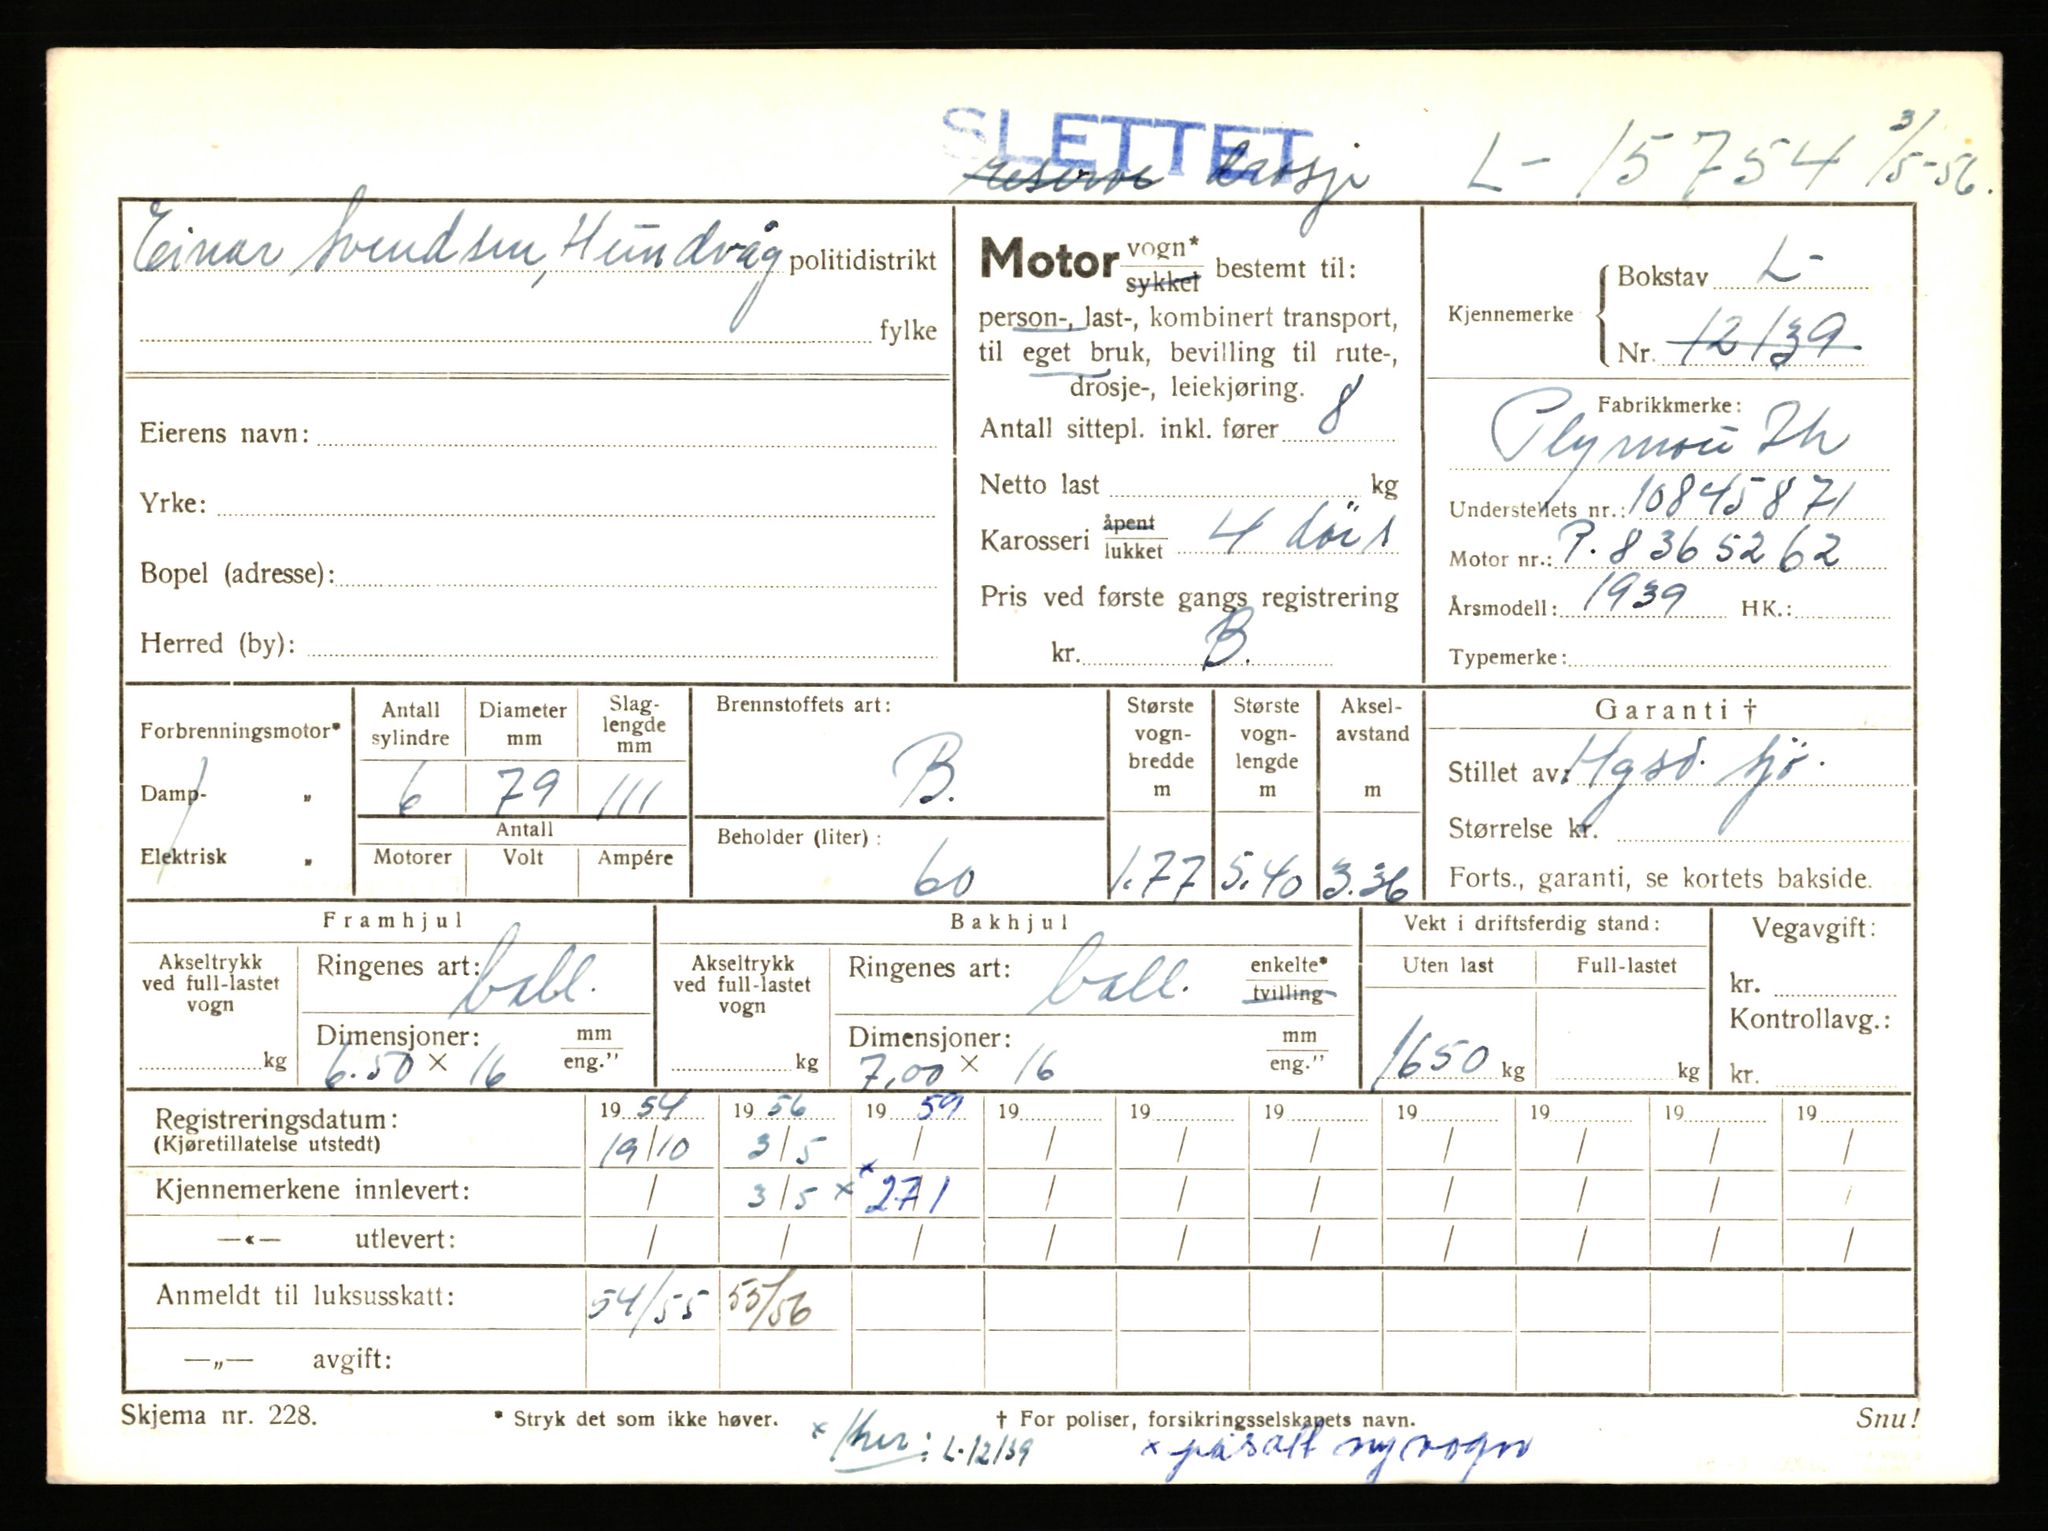 SLETTET
reserve drosje L- 15754 3/5-56.
Einar Svendsen, Hundvåg politidistrikt
fylke
Eierens navn:
Yrke:
Bopel (adresse):
Herred (by):
Motor vogn* sykkel bestemt til:
person-, last-, kombinert transport,
til eget bruk, bevilling til rute-,
drosje-, leiekjøring.
Antall sittepl. inkl. fører 8
Netto last kg
Karosseri åpent lukket 4 dörs
Pris ved første gangs registrering
kr. B.
Kjennemerke
Bokstav L-
Nr. 12139
Fabrikkmerke:
Plymouth
Understellets nr.: 10845871
Motor nr.: P. 8365262
Årsmodell: 1939 HK.:
Typemerke:
Forbrenningsmotor*
Damp- „
Elektrisk „
Antall sylindre Diameter mm Slaglengde mm
6 79 111
Antall
Motorer Volt Ampére
Brennstoffets art:
B.
Beholder (liter):
60
Største vognbredde m Største vognlengde m Akselavstand m
1.77 5.40 3.36
Garanti †
Stillet av: Hgsd. sjö.
Størrelse kr.
Forts., garanti, se kortets bakside.
Framhjul
Akseltrykk ved full-lastet vogn
kg
Ringenes art: ball.
Dimensjoner: mm
6.50 × 16 eng."
Bakhjul
Akseltrykk ved full-lastet vogn
kg
Ringenes art: ball. enkelte* tvilling
Dimensjoner: mm
7,00 × 16 eng."
Vekt i driftsferdig stand:
Uten last Full-lastet
1650 kg kg
Vegavgift:
kr.
Kontrollavg.:
kr.
Registreringsdatum: 19 54 19 56 19 59 19 19 19 19 19 19 19
(Kjøretillatelse utstedt) 19/10 3/5 / / / / / / / /
Kjennemerkene innlevert: / 3/5 × × 27/1 / / / / / / /
—«— utlevert: / / / / / / / / / /
Anmeldt til luksusskatt: 54/55 55/56
—„— avgift:
Skjema nr. 228. * Stryk det som ikke høver. † For poliser, forsikringsselskapets navn. Snu!
× L-12139 × påsatt ny vogn